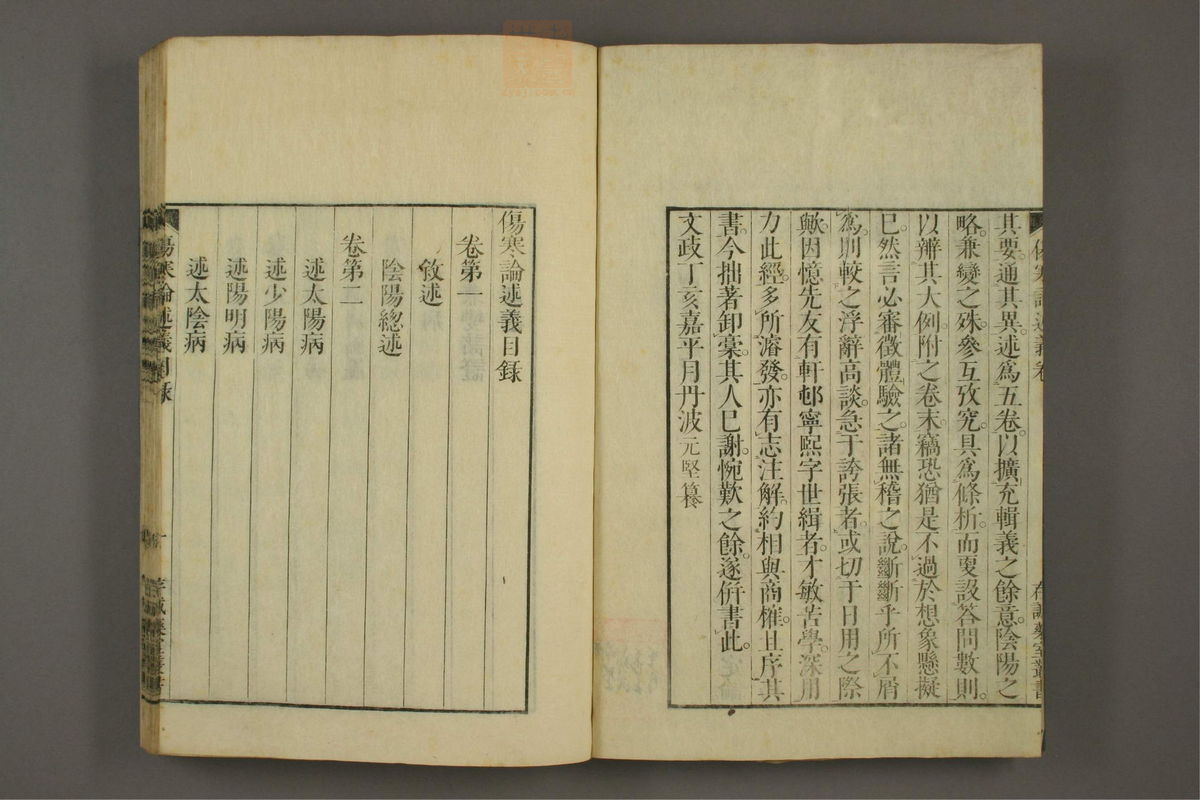 其要。通其異。述爲五卷。以擴充輯義之餘意。陰陽之
略。兼變之殊。參互攷究。具爲條析。而更設答問數則。
以辨其大例。附之卷末。竊恐猶是不過於想象懸擬
已。然言必審徵。體驗之諸。無稽之說。斷斷乎所不屑
爲。則較之浮辭高談。急于誇張者。或切于日用之際
歟。因憶先友有軒邨寧熙字世緝者。才敏苦學。深用
力此經。多所濬發。亦有志注解。約相與商榷。且序其
書。今拙著卸稾。其人已謝。惋歎之餘。遂併書此。
文政丁亥嘉平月丹波元堅纂
傷寒論述義目錄
卷第一
敘述
陰陽總述
卷第二
述太陽病
述少陽病
述陽明病
述太陰病
傷寒論述義目錄
一
存誠藥室叢書